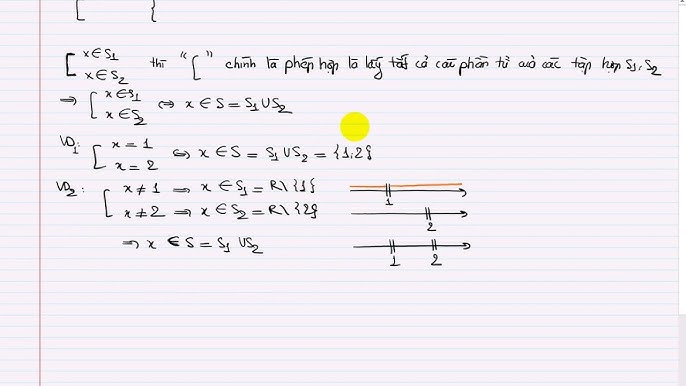 [ }
[ x ∈ S1
x ∈ S2 thì "[" chính là phép hợp là lấy tất cả các phần tử của các tập hợp S1, S2
⇒ [ x ∈ S1
x ∈ S2 ⇔ x ∈ S = S1 ∪ S2
VD1: [ x = 1
x = 2 ⇔ x ∈ S = S1 ∪ S2 = {1;2}
VD2: [ x ≠ 1 ⇒ x ∈ S1 = R\{1} 1
x ≠ 2 ⇒ x ∈ S2 = R\{2} 2
⇒ x ∈ S = S1 ∪ S2 1 2